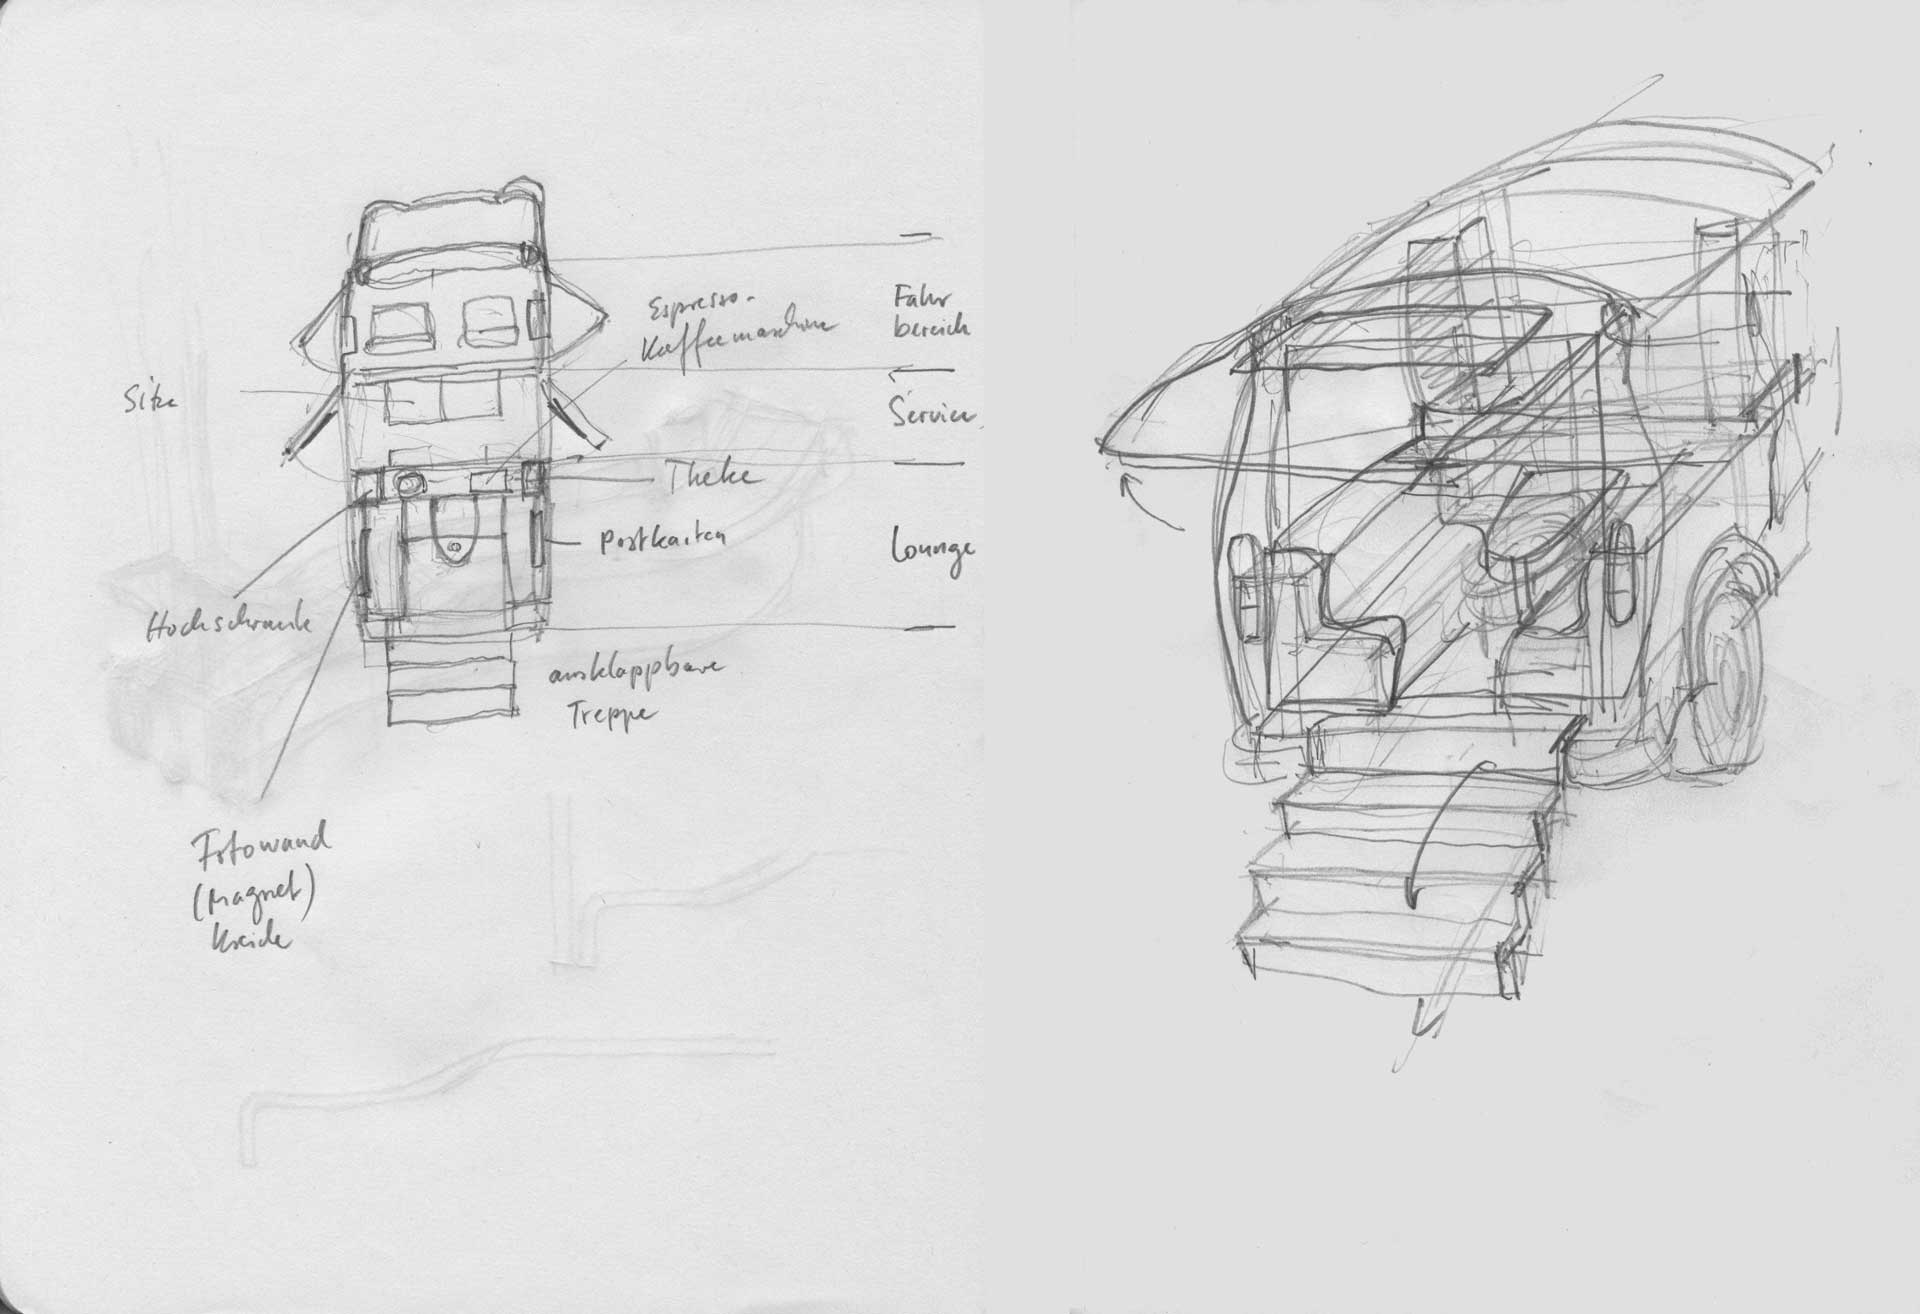 Espresso-
Kaffeemaschine
Fahr
bereich
Sitze
Service
Theke
Postkarten
Lounge
Hochschrank
ausklappbare
Treppe
Fotowand
(Magnet)
Kreide